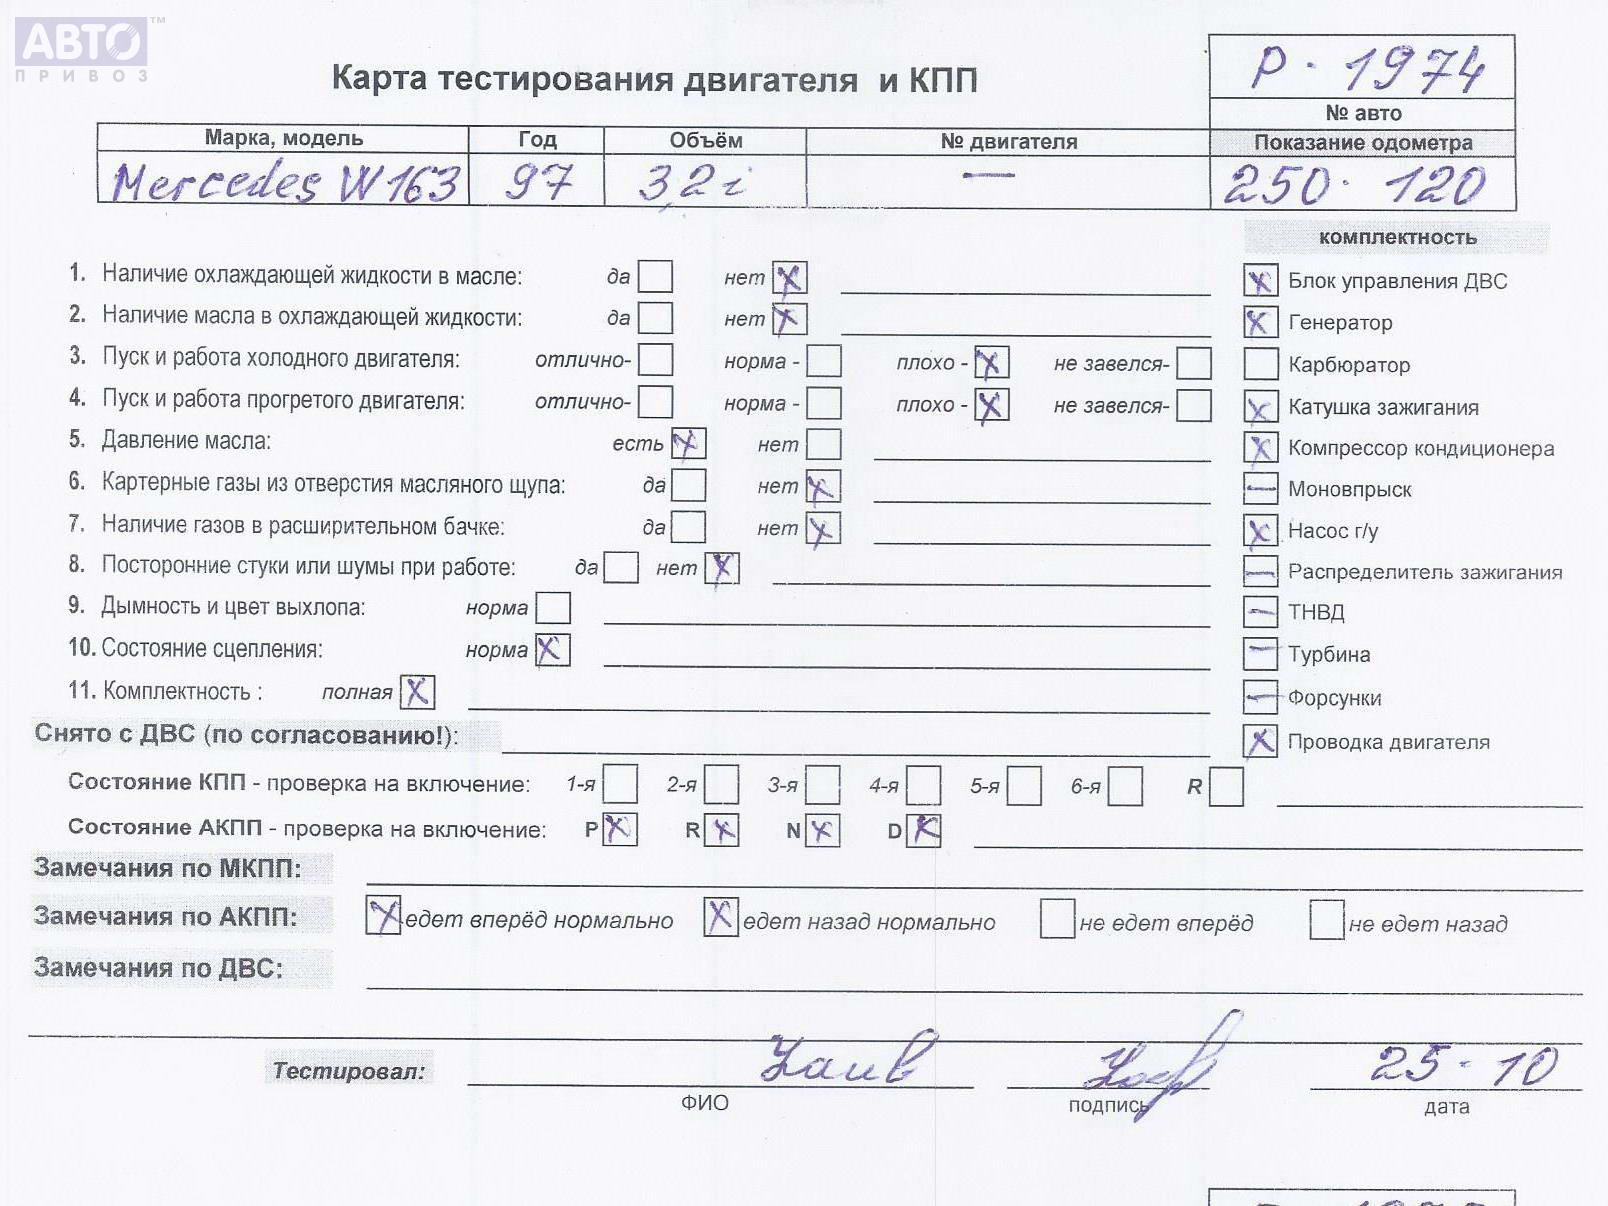 АВТО™
ПРИВОЗ
Карта тестирования двигателя и КПП
Р - 1974
№ авто
Марка, модель Год Объём № двигателя Показание одометра
Mercedes W163 97 3,2i — 250 120
комплектность
1. Наличие охлаждающей жидкости в масле: да нет X
Блок управления ДВС X
2. Наличие масла в охлаждающей жидкости: да нет X
Генератор X
3. Пуск и работа холодного двигателя: отлично- норма - плохо - X не завелся-
Карбюратор
4. Пуск и работа прогретого двигателя: отлично- норма - плохо - X не завелся-
X Катушка зажигания
5. Давление масла: есть X нет
X Компрессор кондиционера
6. Картерные газы из отверстия масляного щупа: да нет X
— Моновпрыск
7. Наличие газов в расширительном бачке: да нет X
X Насос г/у
8. Посторонние стуки или шумы при работе: да нет X
— Распределитель зажигания
9. Дымность и цвет выхлопа: норма
— ТНВД
10. Состояние сцепления: норма X
— Турбина
11. Комплектность : полная X
— Форсунки
Снято с ДВС (по согласованию!):
X Проводка двигателя
Состояние КПП - проверка на включение: 1-я 2-я 3-я 4-я 5-я 6-я R
Состояние АКПП - проверка на включение: P X R X N X D X
Замечания по МКПП:
Замечания по АКПП: X едет вперёд нормально X едет назад нормально не едет вперёд не едет назад
Замечания по ДВС:
Тестировал: 25-10
ФИО подпись дата